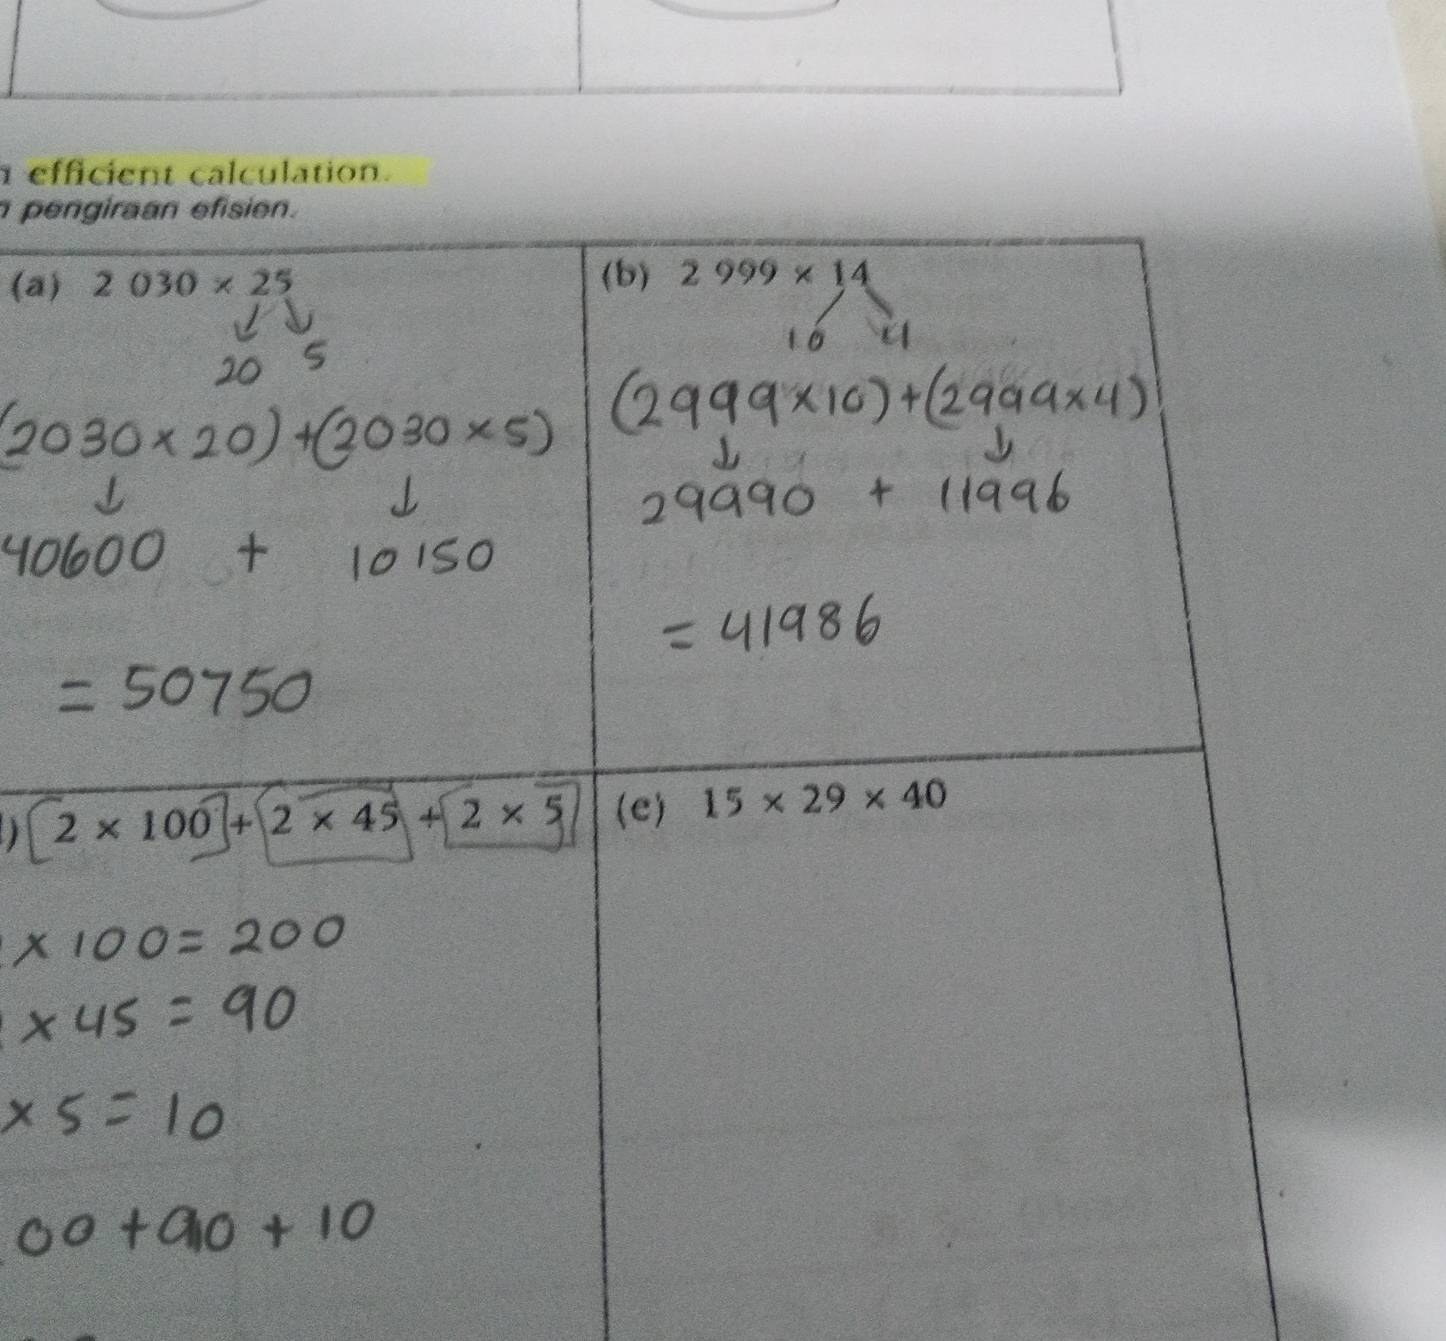 efficient calculation.
pengiraan efisien.
(a) 2 030 × 25
20 5
(2030 × 20) + (2030 × 5)
40600 + 10150
= 50750
(b) 2 999 × 14
10 4
(2999 × 10) + (2999 × 4)
29990 + 11996
= 41986
) 2 × 100 + 2 × 45 + 2 × 5
× 100 = 200
× 45 = 90
× 5 = 10
00 + 90 + 10
(e) 15 × 29 × 40